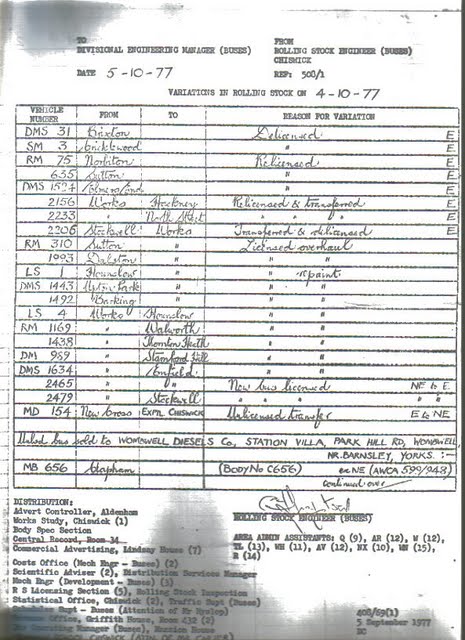 TO
DIVISIONAL ENGINEERING MANAGER (BUSES)
FROM
ROLLING STOCK ENGINEER (BUSES)
CHISWICK
DATE 5-10-77
REF: 508/1
VARIATIONS IN ROLLING STOCK ON 4-10-77
VEHICLE NUMBER FROM TO REASON FOR VARIATION
DMS 31 Brixton Delicensed E
SM 3 Cricklewood " E
RM 75 Norbiton Relicensed E
635 Sutton " E
DMS Elmers End " E
2156 Works Hackney Relicensed & transferred E
2233 " North Street " " " E
2206 Stockwell Works Transferred & delicensed E
RM 310 Sutton " Licensed overhaul
1993 Dalston " " "
LS 1 Hounslow " " repaint
DMS 1443 Upton Park " " "
1492 Barking " " "
LS 4 Works Hounslow " "
RM 1169 " Walworth " "
1438 " Thornton Heath " "
DM 989 " Stamford Hill " "
DMS 1634 " Enfield " "
2465 " " New bus licensed NE to E
2479 " Stockwell " " " " "
MD 154 New Cross EXPTL CHISWICK Unlicensed transfer E to NE
bus sold to WOMBWELL DIESELS Co, STATION VILLA, PARK HILL RD, WOMBWELL,
NR. BARNSLEY, YORKS. :-
MB 656 Clapham (BODY No C656) ex NE (AWCA 599/948)
continued over
DISTRIBUTION:
Advert Controller, Aldenham
Works Study, Chiswick (1)
Body Spec Section
Central Record, Room 34
Commercial Advertising, Lindsay House (7)
Costs Office (Mech Engr - Buses) (2)
Scientific Adviser (2), Distribution Services Manager
Mech Engr (Development - Buses) (3)
R S Licensing Section (5), Rolling Stock Inspection
Statistical Office, Chiswick (2), Traffic Supt (Buses)
Supt - Buses (Attention of Mr Hyslop)
Office, Griffith House, Room 432 (2)
Manager (Buses), Mansion House
ROLLING STOCK ENGINEER (BUSES)
AREA ADMIN ASSISTANTS: Q (9), AR (12), W (12),
TL (13), WH (11), AV (12), NX (10), WN (15),
R (14)
408/69(1)
5 September 1977